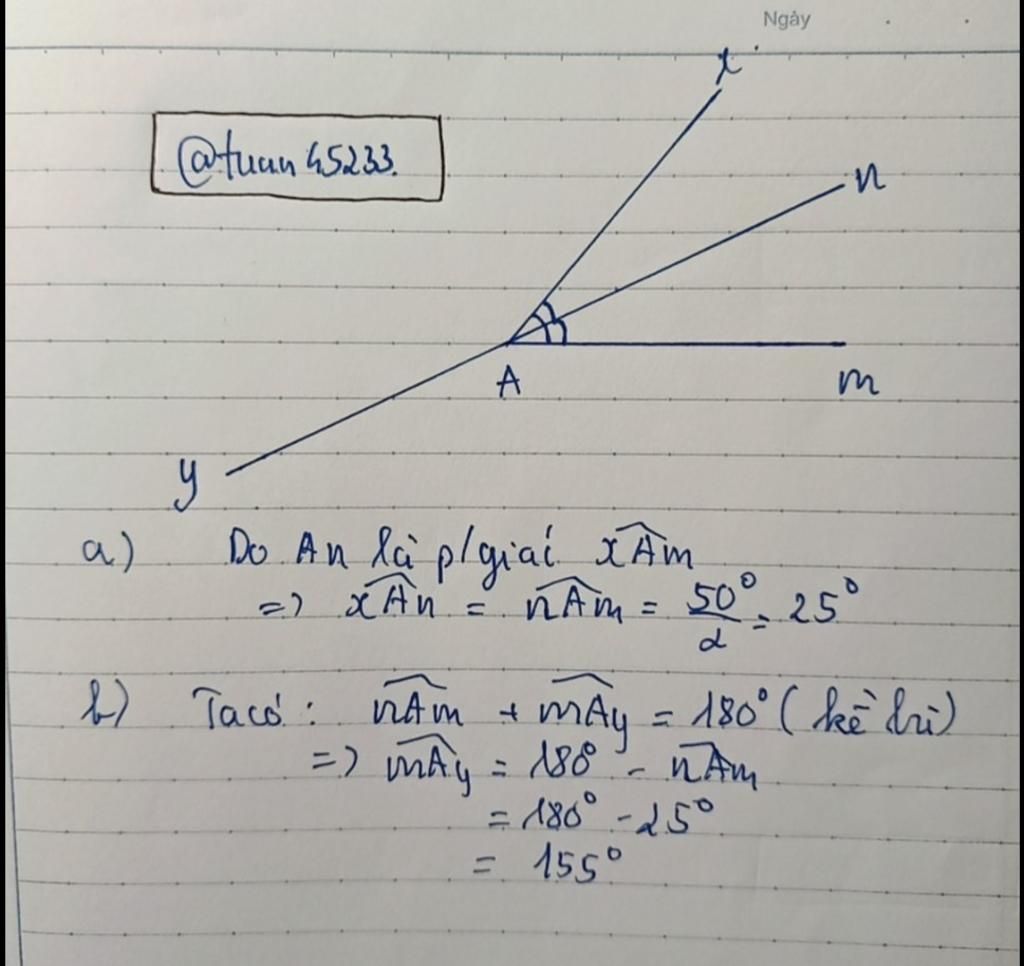 Ngày
x
@tuan45233.
n
A
m
y
a) Do An là p/giác xAm
=> xAn = nAm = 50°/2 = 25°
b) Ta có: nAm + mAy = 180° (kề bù)
=> mAy = 180° - nAm
= 180° - 25°
= 155°